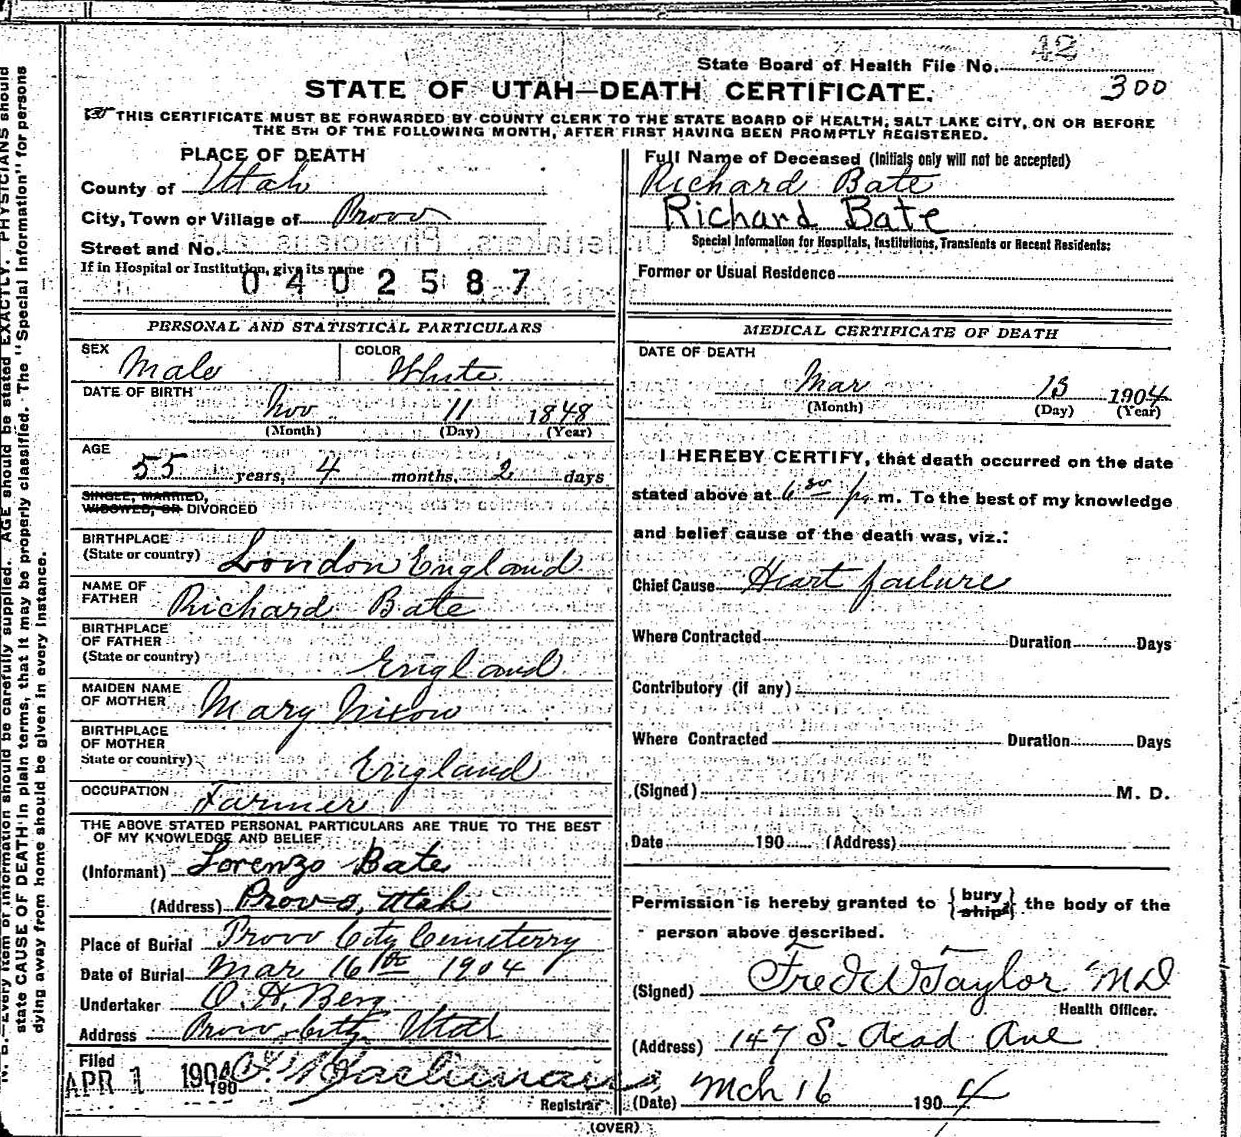 42
State Board of Health File No.
300
STATE OF UTAH—DEATH CERTIFICATE.
THIS CERTIFICATE MUST BE FORWARDED BY COUNTY CLERK TO THE STATE BOARD OF HEALTH, SALT LAKE CITY, ON OR BEFORE
THE 5TH OF THE FOLLOWING MONTH, AFTER FIRST HAVING BEEN PROMPTLY REGISTERED.
PLACE OF DEATH
County of Utah
City, Town or Village of Provo
Street and No.
If in Hospital or Institution, give its name
0402587
Full Name of Deceased (Initials only will not be accepted)
Richard Bate
Richard Bate
Special Information for Hospitals, Institutions, Transients or Recent Residents:
Former or Usual Residence
PERSONAL AND STATISTICAL PARTICULARS
SEX Male COLOR White
DATE OF BIRTH
Nov 11 1848
(Month) (Day) (Year)
AGE
55 years, 4 months, 2 days
SINGLE, MARRIED,
WIDOWED, OR DIVORCED
BIRTHPLACE
(State or country) London England
NAME OF
FATHER Richard Bate
BIRTHPLACE
OF FATHER
(State or country) England
MAIDEN NAME
OF MOTHER Mary Nixon
BIRTHPLACE
OF MOTHER
State or country) England
OCCUPATION Farmer
THE ABOVE STATED PERSONAL PARTICULARS ARE TRUE TO THE BEST
OF MY KNOWLEDGE AND BELIEF
(Informant) Lorenzo Bate
(Address) Provo, Utah
Place of Burial Provo City Cemeterry
Date of Burial Mar 16th 1904
Undertaker O. H. Berg
Address Provo City Utah
Filed
APR 1 1904
190
Registrar
MEDICAL CERTIFICATE OF DEATH
DATE OF DEATH
Mar 13 1904
(Month) (Day) (Year)
I HEREBY CERTIFY, that death occurred on the date
stated above at 6 30 p. m. To the best of my knowledge
and belief cause of the death was, viz.:
Chief Cause Heart failure
Where Contracted Duration Days
Contributory (if any)
Where Contracted Duration Days
(Signed) M. D.
Date 190 (Address)
Permission is hereby granted to {bury ship} the body of the
person above described.
(Signed) Fred W Taylor MD
Health Officer.
(Address) 147 S. Acad Ave
(Date) Mch 16 1904
(OVER)
N. B.—Every item of information should be carefully supplied. AGE should be stated EXACTLY. PHYSICIANS should
state CAUSE OF DEATH in plain terms, that it may be properly classified. The "Special Information" for persons
dying away from home should be given in every instance.